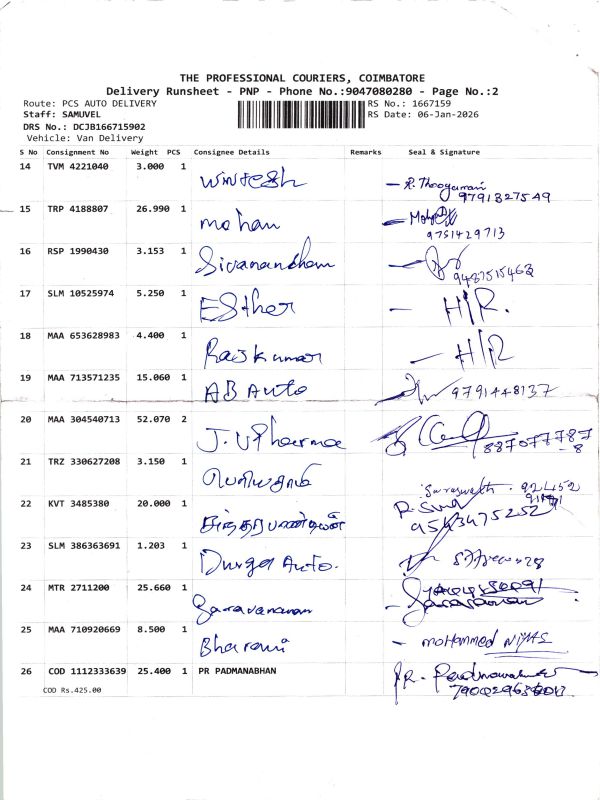 THE PROFESSIONAL COURIERS, COIMBATORE
Delivery Runsheet - PNP - Phone No.:9047080280 - Page No.:2
Route: PCS AUTO DELIVERY RS No.: 1667159
Staff: SAMUVEL RS Date: 06-Jan-2026
DRS No.: DCJB166715902
Vehicle: Van Delivery
S No Consignment No Weight PCS Consignee Details Remarks Seal & Signature
14 TVM 4221040 3.000 1
9791827549
15 TRP 4188807 26.990 1 mohan
9751429713
16 RSP 1990430 3.153 1 Sivanandham
9487515463
17 SLM 10525974 5.250 1 Esther - H/R.
18 MAA 653628983 4.400 1 Rajkumar - H/R
19 MAA 713571235 15.060 1 AB Auto 9791448137
20 MAA 304540713 52.070 2 J.V Pharma
21 TRZ 330627208 3.150 1
22 KVT 3485380 20.000 1
23 SLM 386363691 1.203 1 Durga Auto.
24 MTR 2711200 25.660 1 Saravanan Saravanan
25 MAA 710920669 8.500 1 Bharani - mohammed NIYAS
26 COD 1112333639 25.400 1 PR PADMANABHAN
COD Rs.425.00